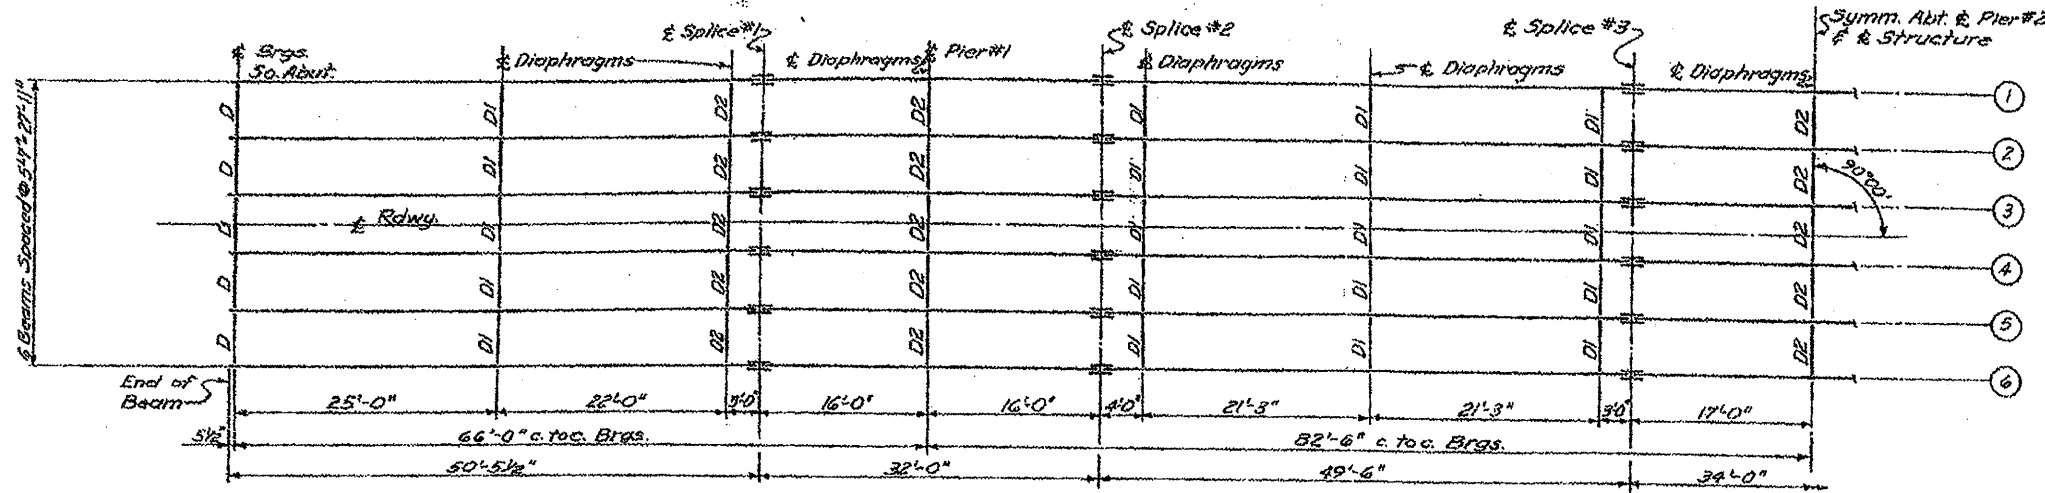 ℄ Brgs.
So. Abut.
℄ Diaphragms
℄ Splice #1
℄ Diaphragms
℄ Pier #1
℄ Splice #2
℄ Diaphragms
℄ Diaphragms
℄ Splice #3
℄ Diaphragms
Symm. Abt. ℄ Pier #2
& ℄ Structure
6 Beams Spaced @ 5'-7" = 27'-11"
D D1 D2 D2 D1 D1 D1 D2 1
D D1 D2 D2 D1 D1 D1 D2 2
90°00'
D D1 D2 D2 D1 D1 D1 D2 3
℄ Rdwy.
D D1 D2 D2 D1 D1 D1 D2 4
D D1 D2 D2 D1 D1 D1 D2 5
6
End of
Beam
25'-0" 22'-0" 3'-0" 16'-0" 16'-0" 4'-0" 21'-3" 21'-3" 3'-0" 17'-0"
5½" 66'-0" c. to c. Brgs. 82'-6" c. to c. Brgs.
50'-5½" 32'-0" 49'-6" 34'-0"